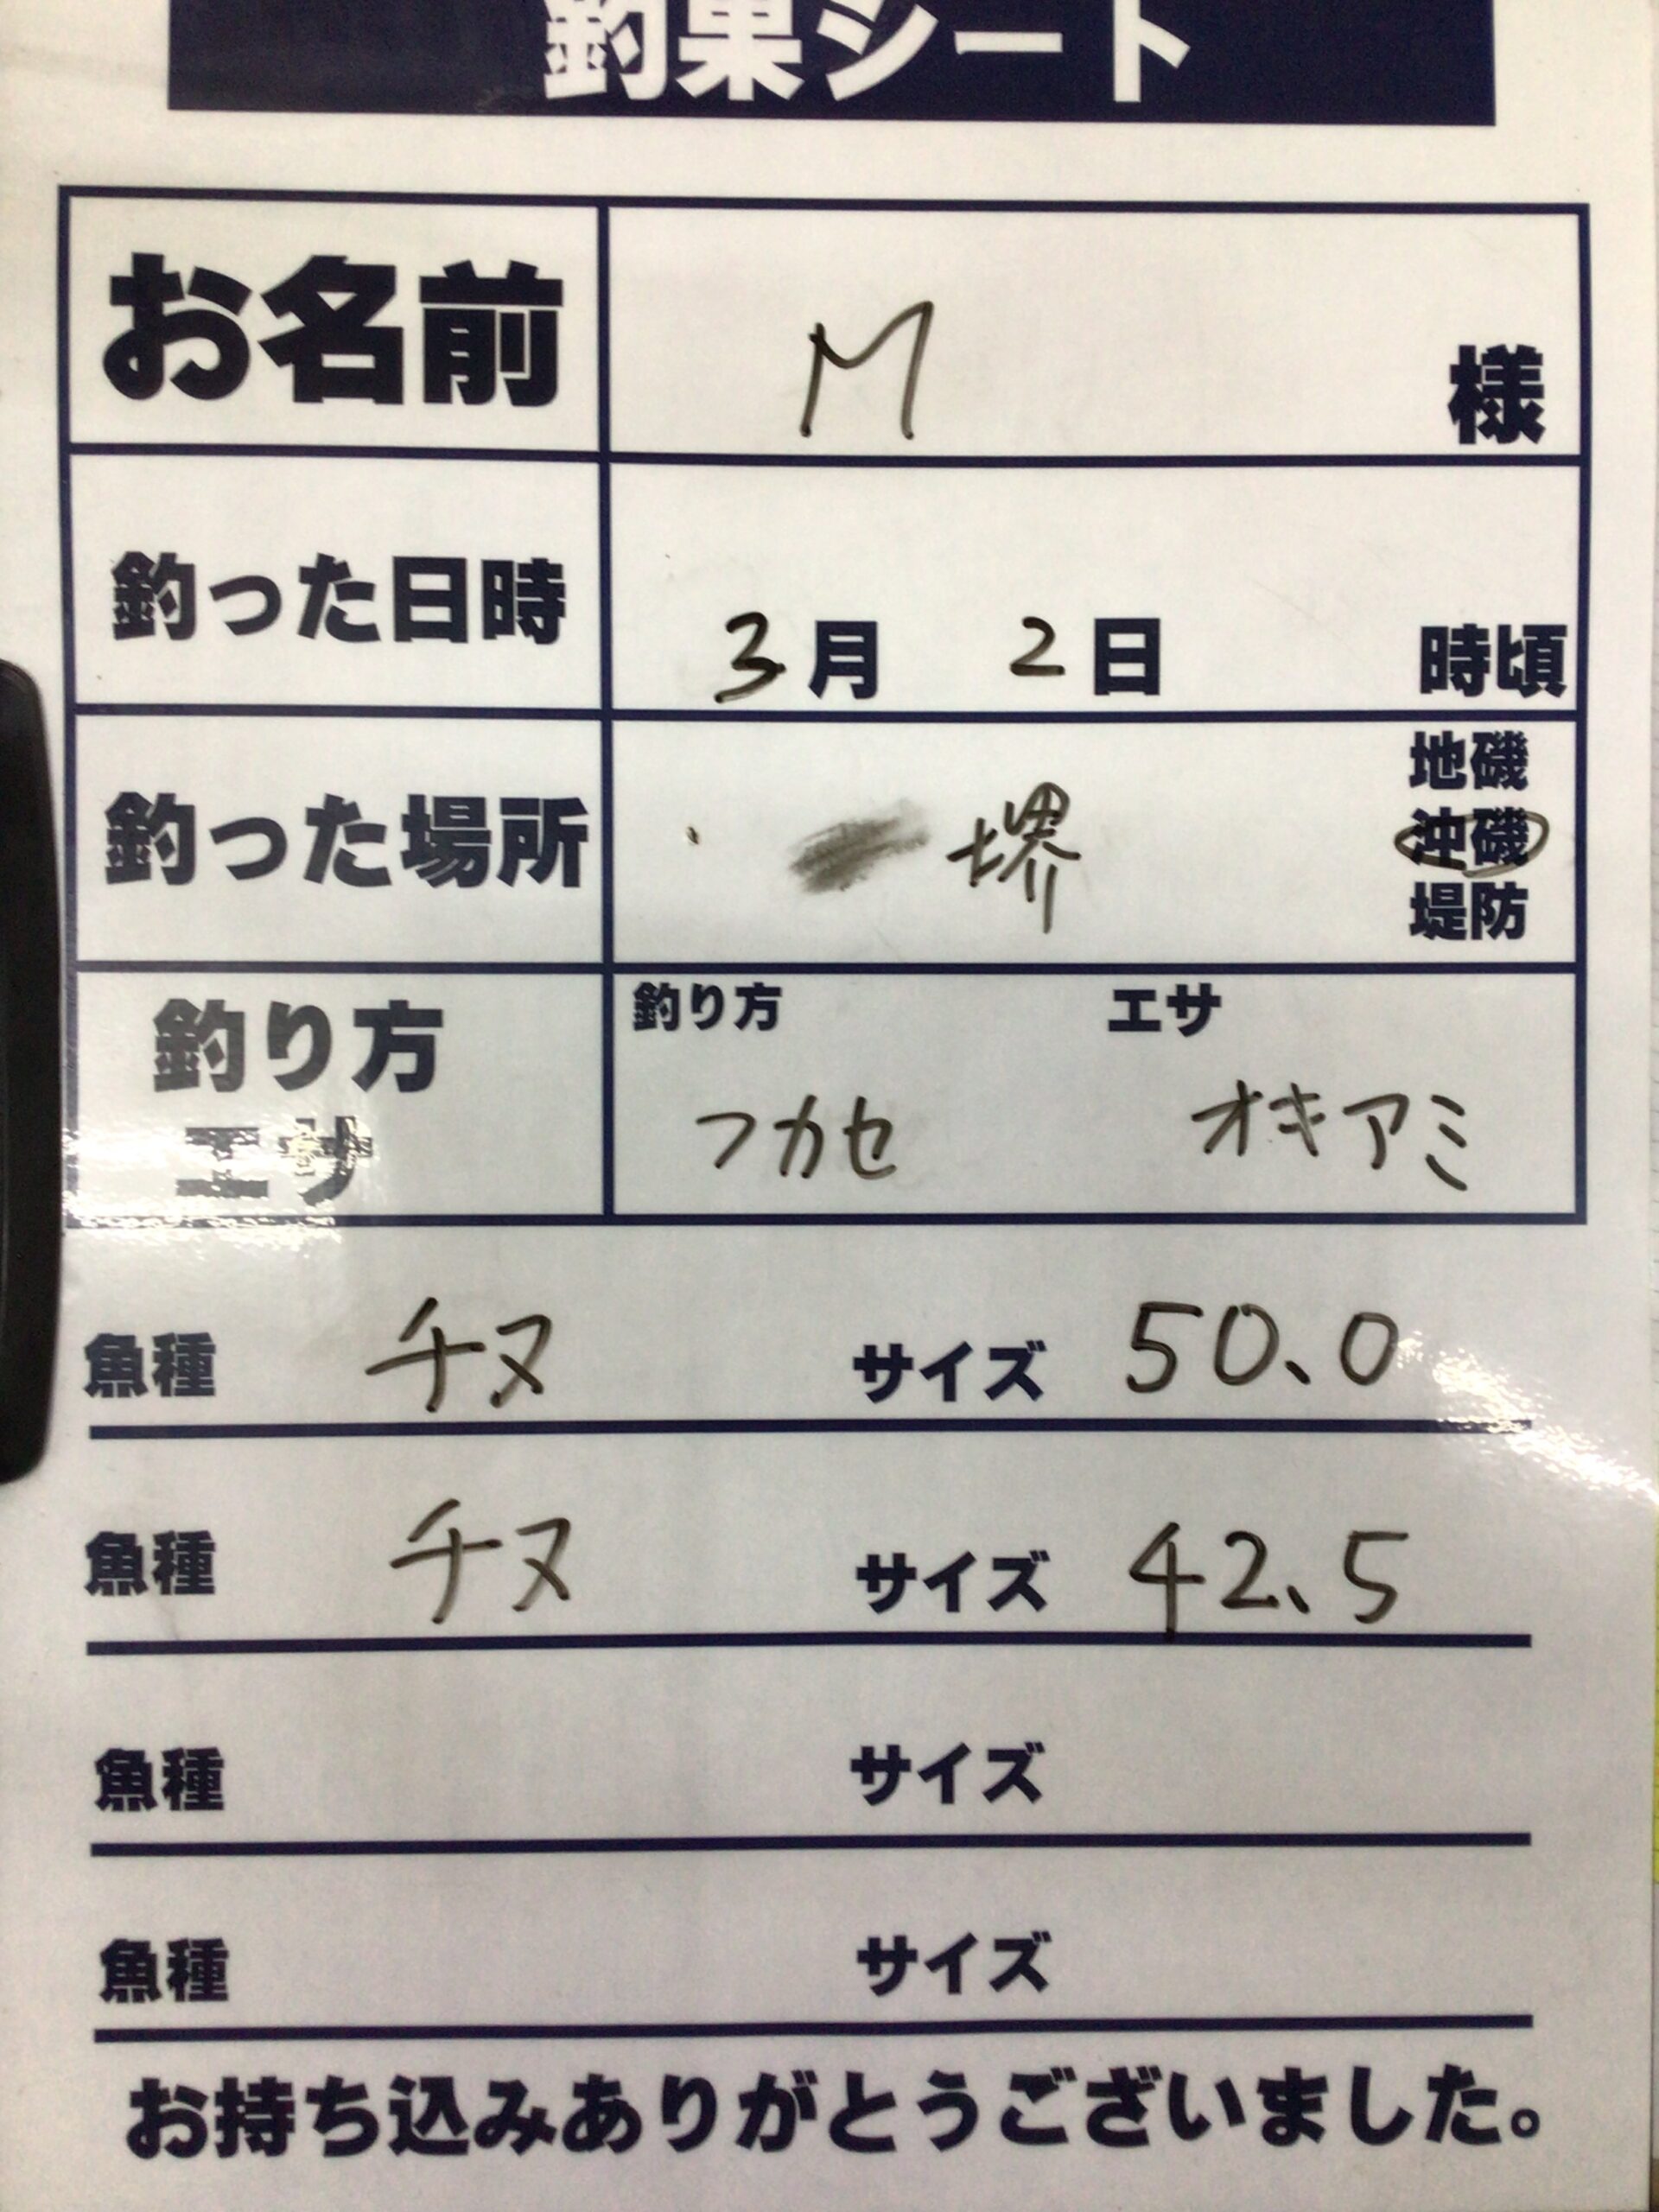 釣果シート
お名前 M 様
釣った日時 3月 2日 時頃
釣った場所 堺 地磯
沖磯
堤防
釣り方 エサ
釣り方 フカセ オキアミ
エサ
魚種 チヌ サイズ 50.0
魚種 チヌ サイズ 42.5
魚種 サイズ
魚種 サイズ
お持ち込みありがとうございました。